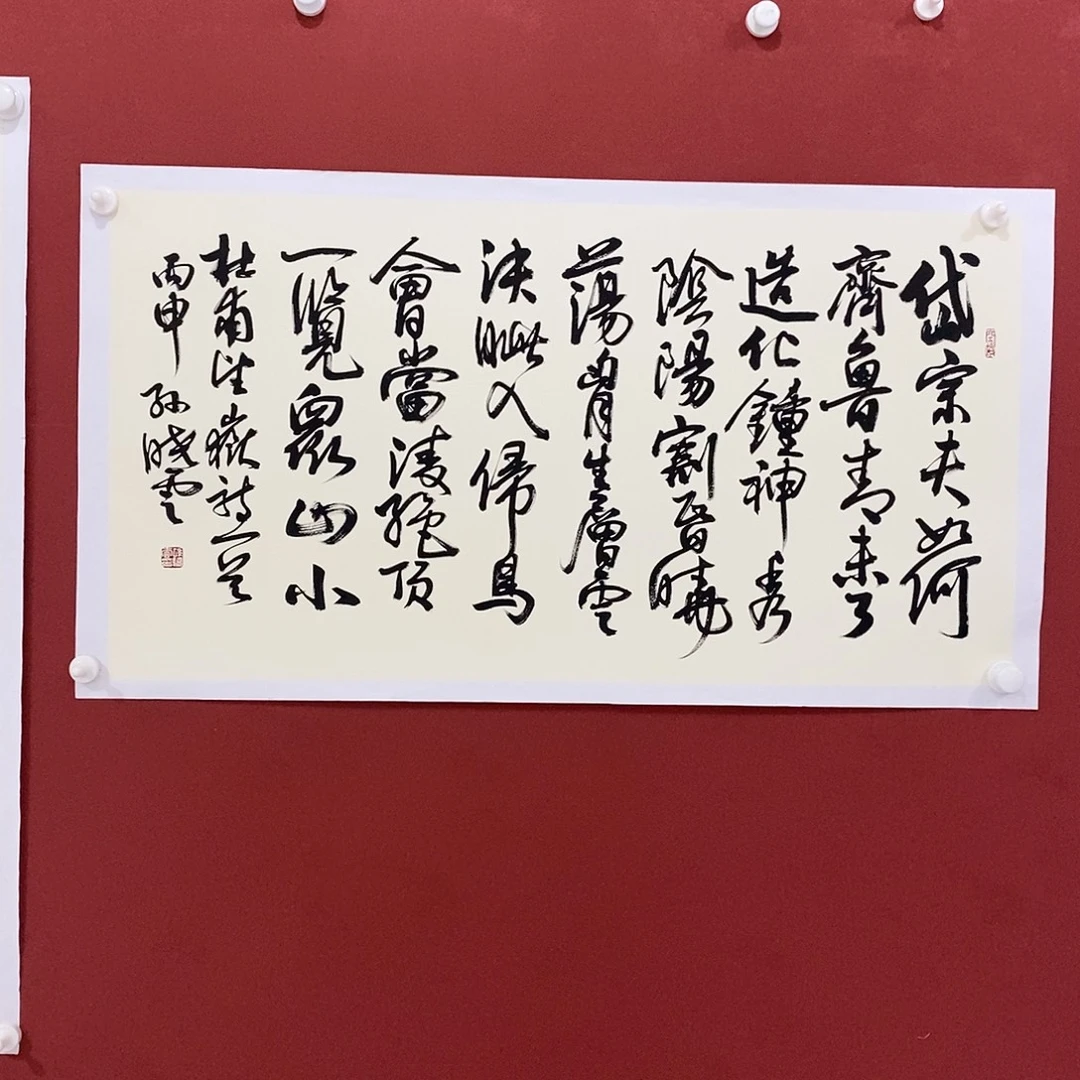 岱宗夫如何
齊魯青未了
造化鐘神秀
陰陽割昏曉
蕩胷生層雲
決眥入歸鳥
會當淩絶頂
一覽衆山小
杜甫望嶽詩一首
丙申 孫曉雲